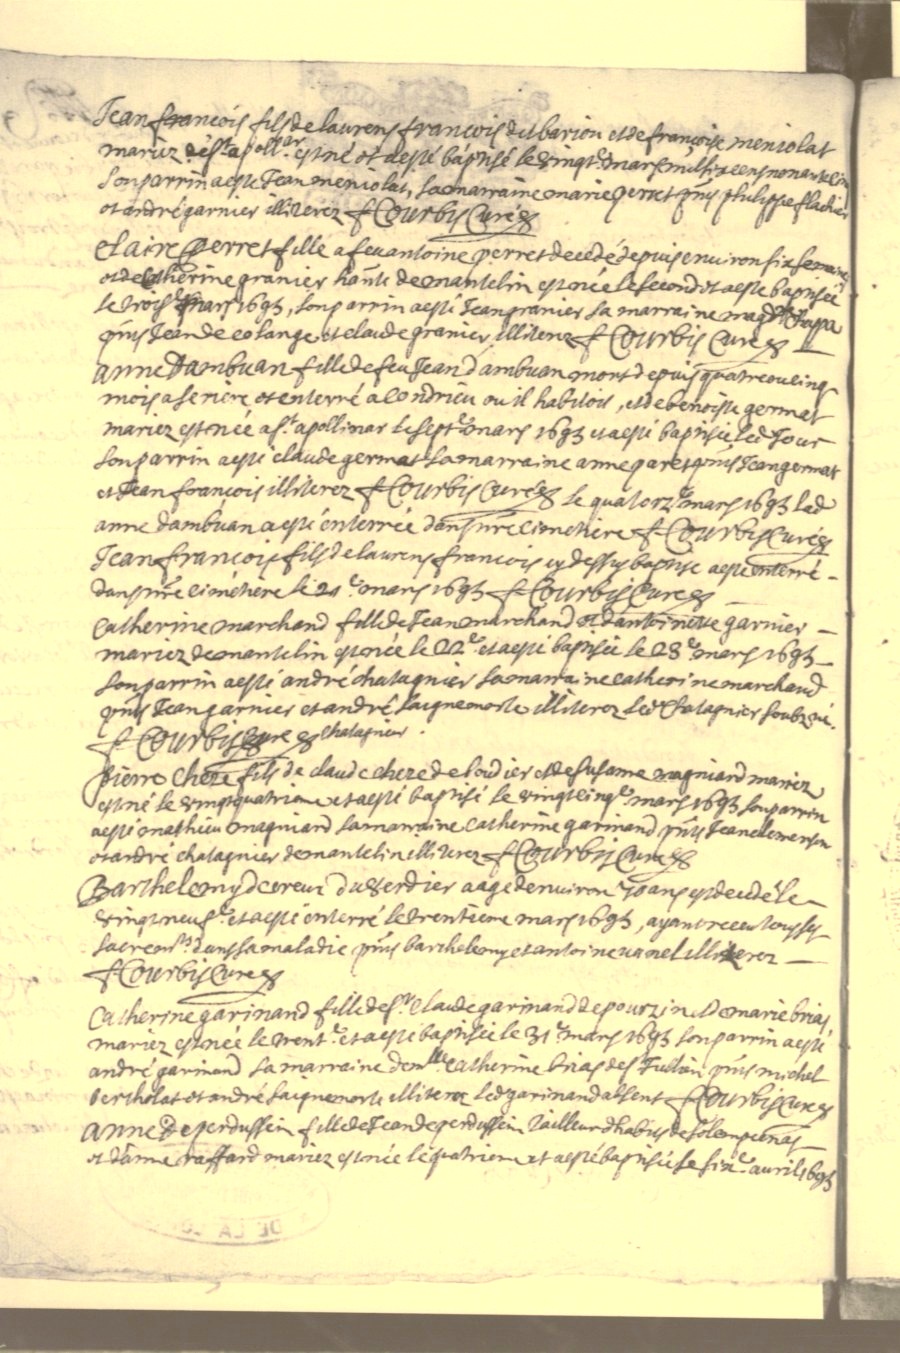 Jean francois fils de laurens francois dit barion et de francoise meniolat
mariez de st apollar est né et a esté baptisé le vingte mars mil six cens nonante
Son parrin a esté Jean meniolat, sa marraine marie perret pnts philippe flachier
et andré garnier illiterez f Courbis Curé
Claire perret fille a feu antoine perret decedé depuis environ six semaines
et de Catherine granier hants de mantelin est née le second et a esté baptisée
le trois mars 1693, son parrin a esté Jean granier sa marraine magd Chappa
pnts Jean de colange et claude granier illiterez f Courbis Curé
anne Dambuan fille de feu Jean dambuan mort depuis quatre ou cinq
mois a seriere et enterré a Condrieu ou il habitois, et de benoiste germat
mariez est née a st apollinar le septe mars 1693 et a esté baptisée led Jour
son parrin a esté claude germat sa marraine anne garet pnts Jean germat
et Jean francois illiterez f Courbis Curé le quatorze mars 1693 lad
anne dambuan a esté enterrée dans nre cimetiere f Courbis Curé
Jean francois fils de laurens francois cy dessus baptisé a esté enterré
dans nre cimetiere le 21e mars 1693 f Courbis Curé
Catherine marchand fille de Jean marchand et dantoinette garnier
mariez de mantelin est née le 22e et a esté baptisée le 23e mars 1693
son parrin a esté andré chatagnier sa marraine catherine marchand
pnts Jean garnier et andré saignemorte illiterez led Chatagnier soubzné.
f Courbis Curé chatagnier.
pierre Cheze fils de claude cheze de loudier et de susanne magniard mariez
est né le vingtquatrieme et a esté baptisé le vingtcinqe mars 1693 son parrin
a esté mathieu magniard sa marraine Catherine garinand pnts Jean clemenson
et andré chatagnier de mantelin illiterez f Courbis Curé
Barthelemy decreux du verdier aage denviron 70 ans est decedé le
vingtneufe et a esté enterré le trentieme mars 1693, ayant receu tous ses
sacremts dans sa maladie pnts barthelemy et antoine vanel illiterez
f Courbis Curé
Catherine garinand fille de sr Claude garinand de pourzin et de marie brias
mariez est née le trente et a esté baptisée le 31e mars 1693 son parrin a esté
andré garinand sa marraine demlle Catherine brias de st Jullin pnts michel
bertholat et andré saignemorte illiterez led garinand absent f Courbis Curé
anne deperdussein fille de Jean deperdussein tailleur dhabits de
et danne raffard mariez est née le quatrieme et a esté baptisée le sixe avril 1693
DE LA